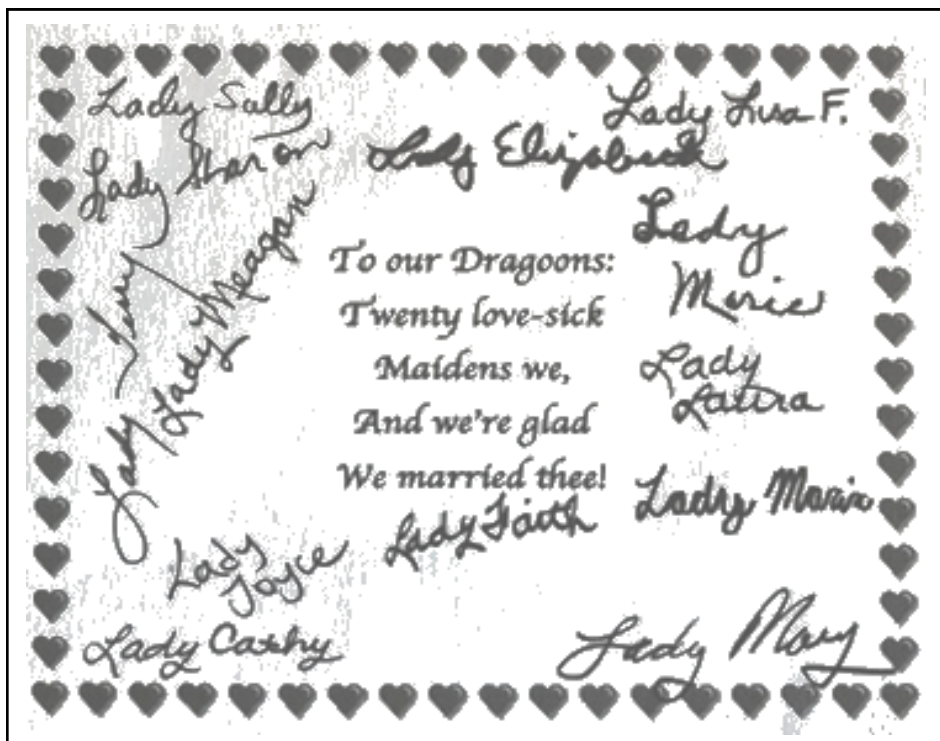 Lady Sally
Lady Lisa F.
Lady Sharon
Lady Elizabeth
Lady Meagan
Lady
Marie
To our Dragoons:
Twenty love-sick
Maidens we,
And we're glad
We married thee!
Lady
Laura
Lady
Lady Faith
Lady
Lady
Joyce
Lady Cathy
Lady Mary